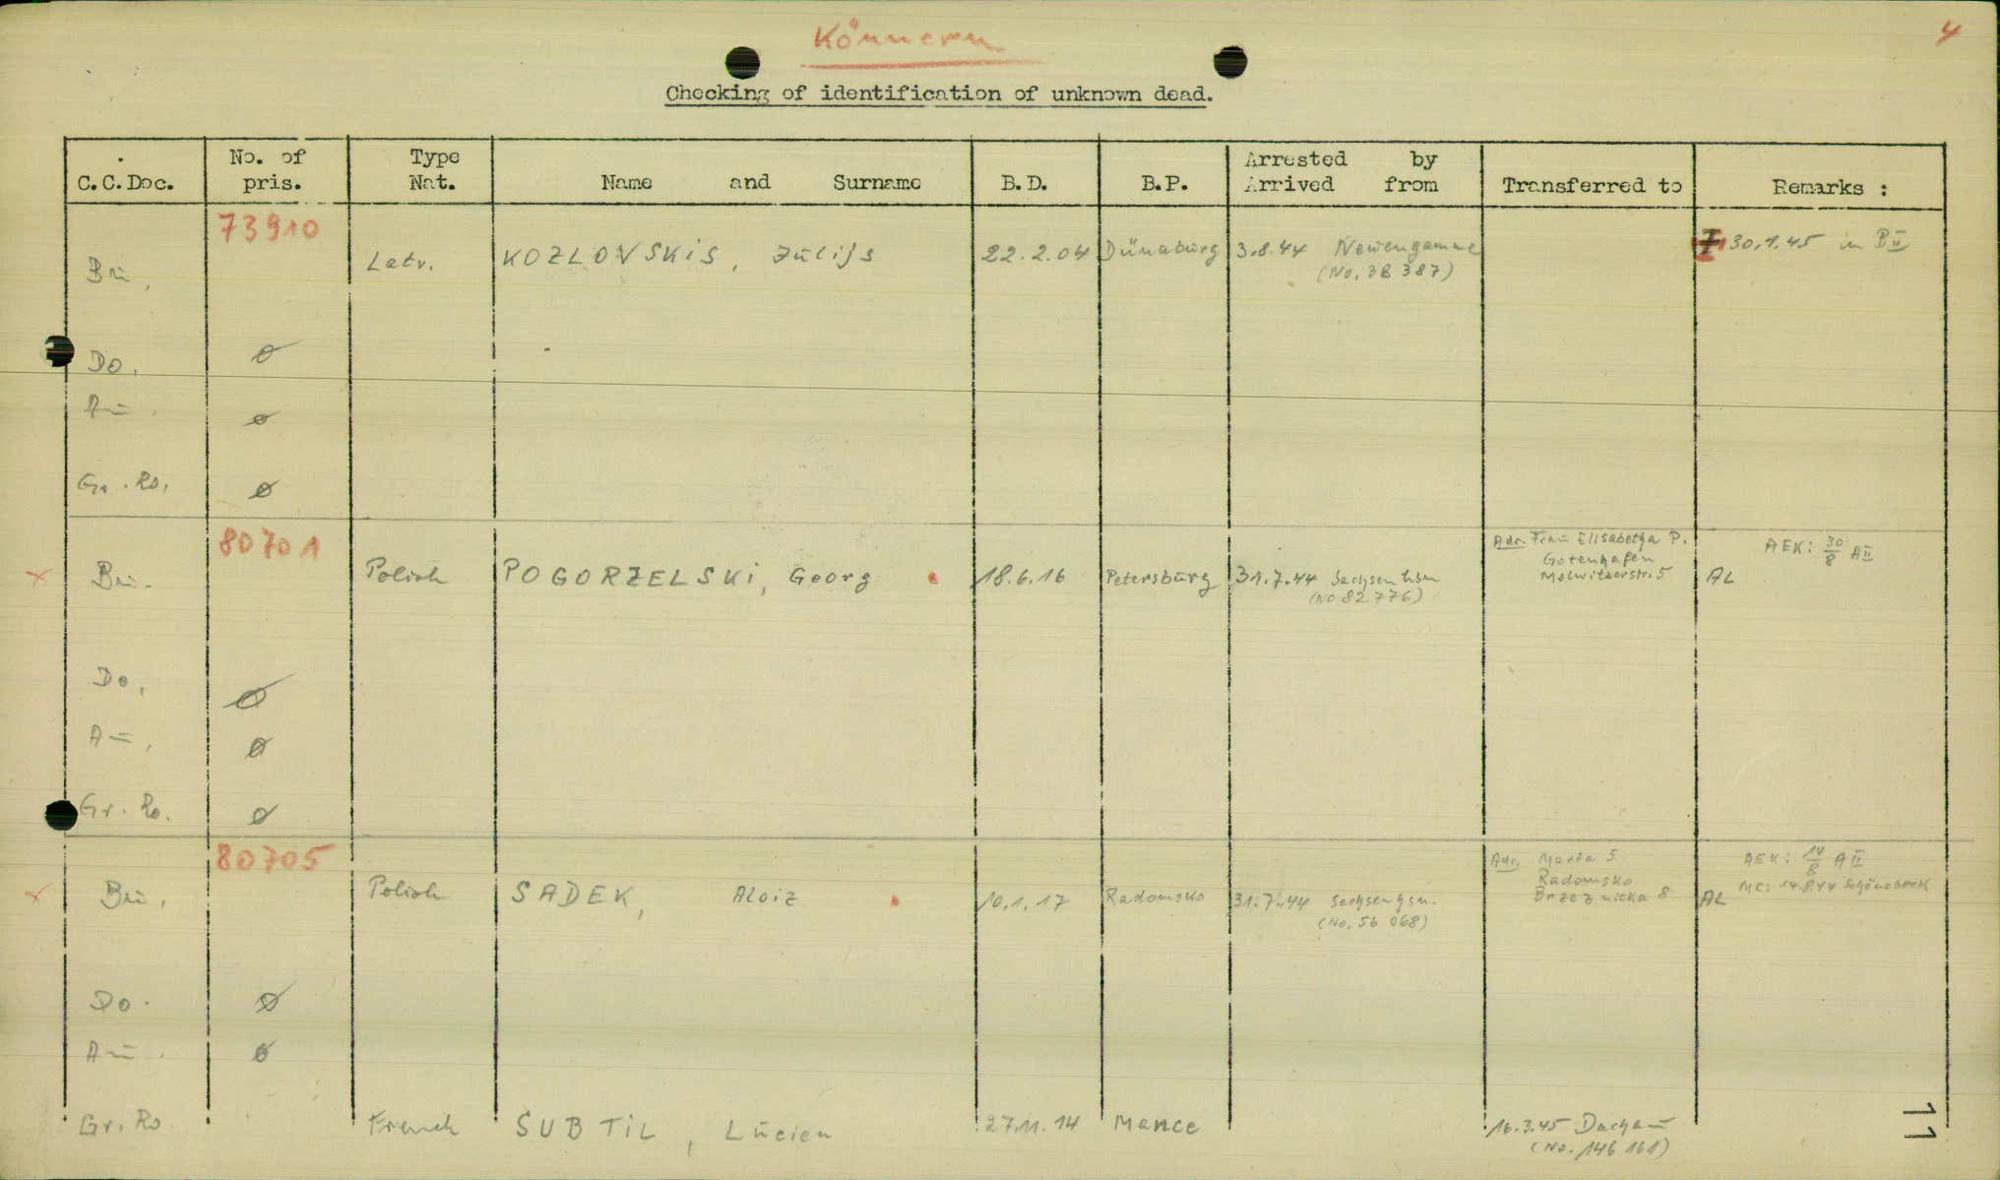 Könnern
4
Checking of identification of unknown dead.
C.C.Doc. No. of pris. Type Nat. Name and Surname B.D. B.P. Arrested by Arrived from Transferred to Remarks :
73910
Bu, Letv. KOZLOVSKIS, Jūlijs 22.2.04 Dünaburg 3.8.44 Neuengamme 30.1.45 in BII
(No. 38 387)
Do, ø
Au. ø
Gr. Ro, ø
80701
Bu. Polish POGORZELSKI, Georg 18.6.16 Petersburg 31.7.44 Sachsenhsn Adr. Frau Elisabetha P. AEK: 30/8 AII
(No 82 776) Gotenhafen
Molwitzerstr. 5 AL
Do, ø
Au, ø
Gr. Ro. ø
80705
Bu, Polish SADEK, Aloiz 10.1.17 Radomsko 31.7.44 Sachsenhsn. Adr. Marta S AEK: 14/8 AII
(No. 56 068) Radomsko MC: 14.8.44 Schönebeck
Brzeznicka 8 AL
Do. ø
Au. ø
Gr. Ro French SUBTIL, Lucien 27.11.14 Mance 16.3.45 Dachau
(No. 146 161)
11